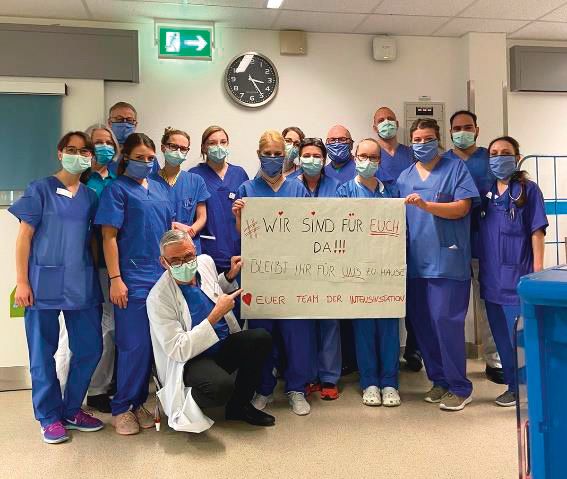 # WIR SIND FÜR EUCH
DA!!!
BLEIBT IHR FÜR UNS ZU HAUSE
EUER TEAM DER INTENSIVSTATION